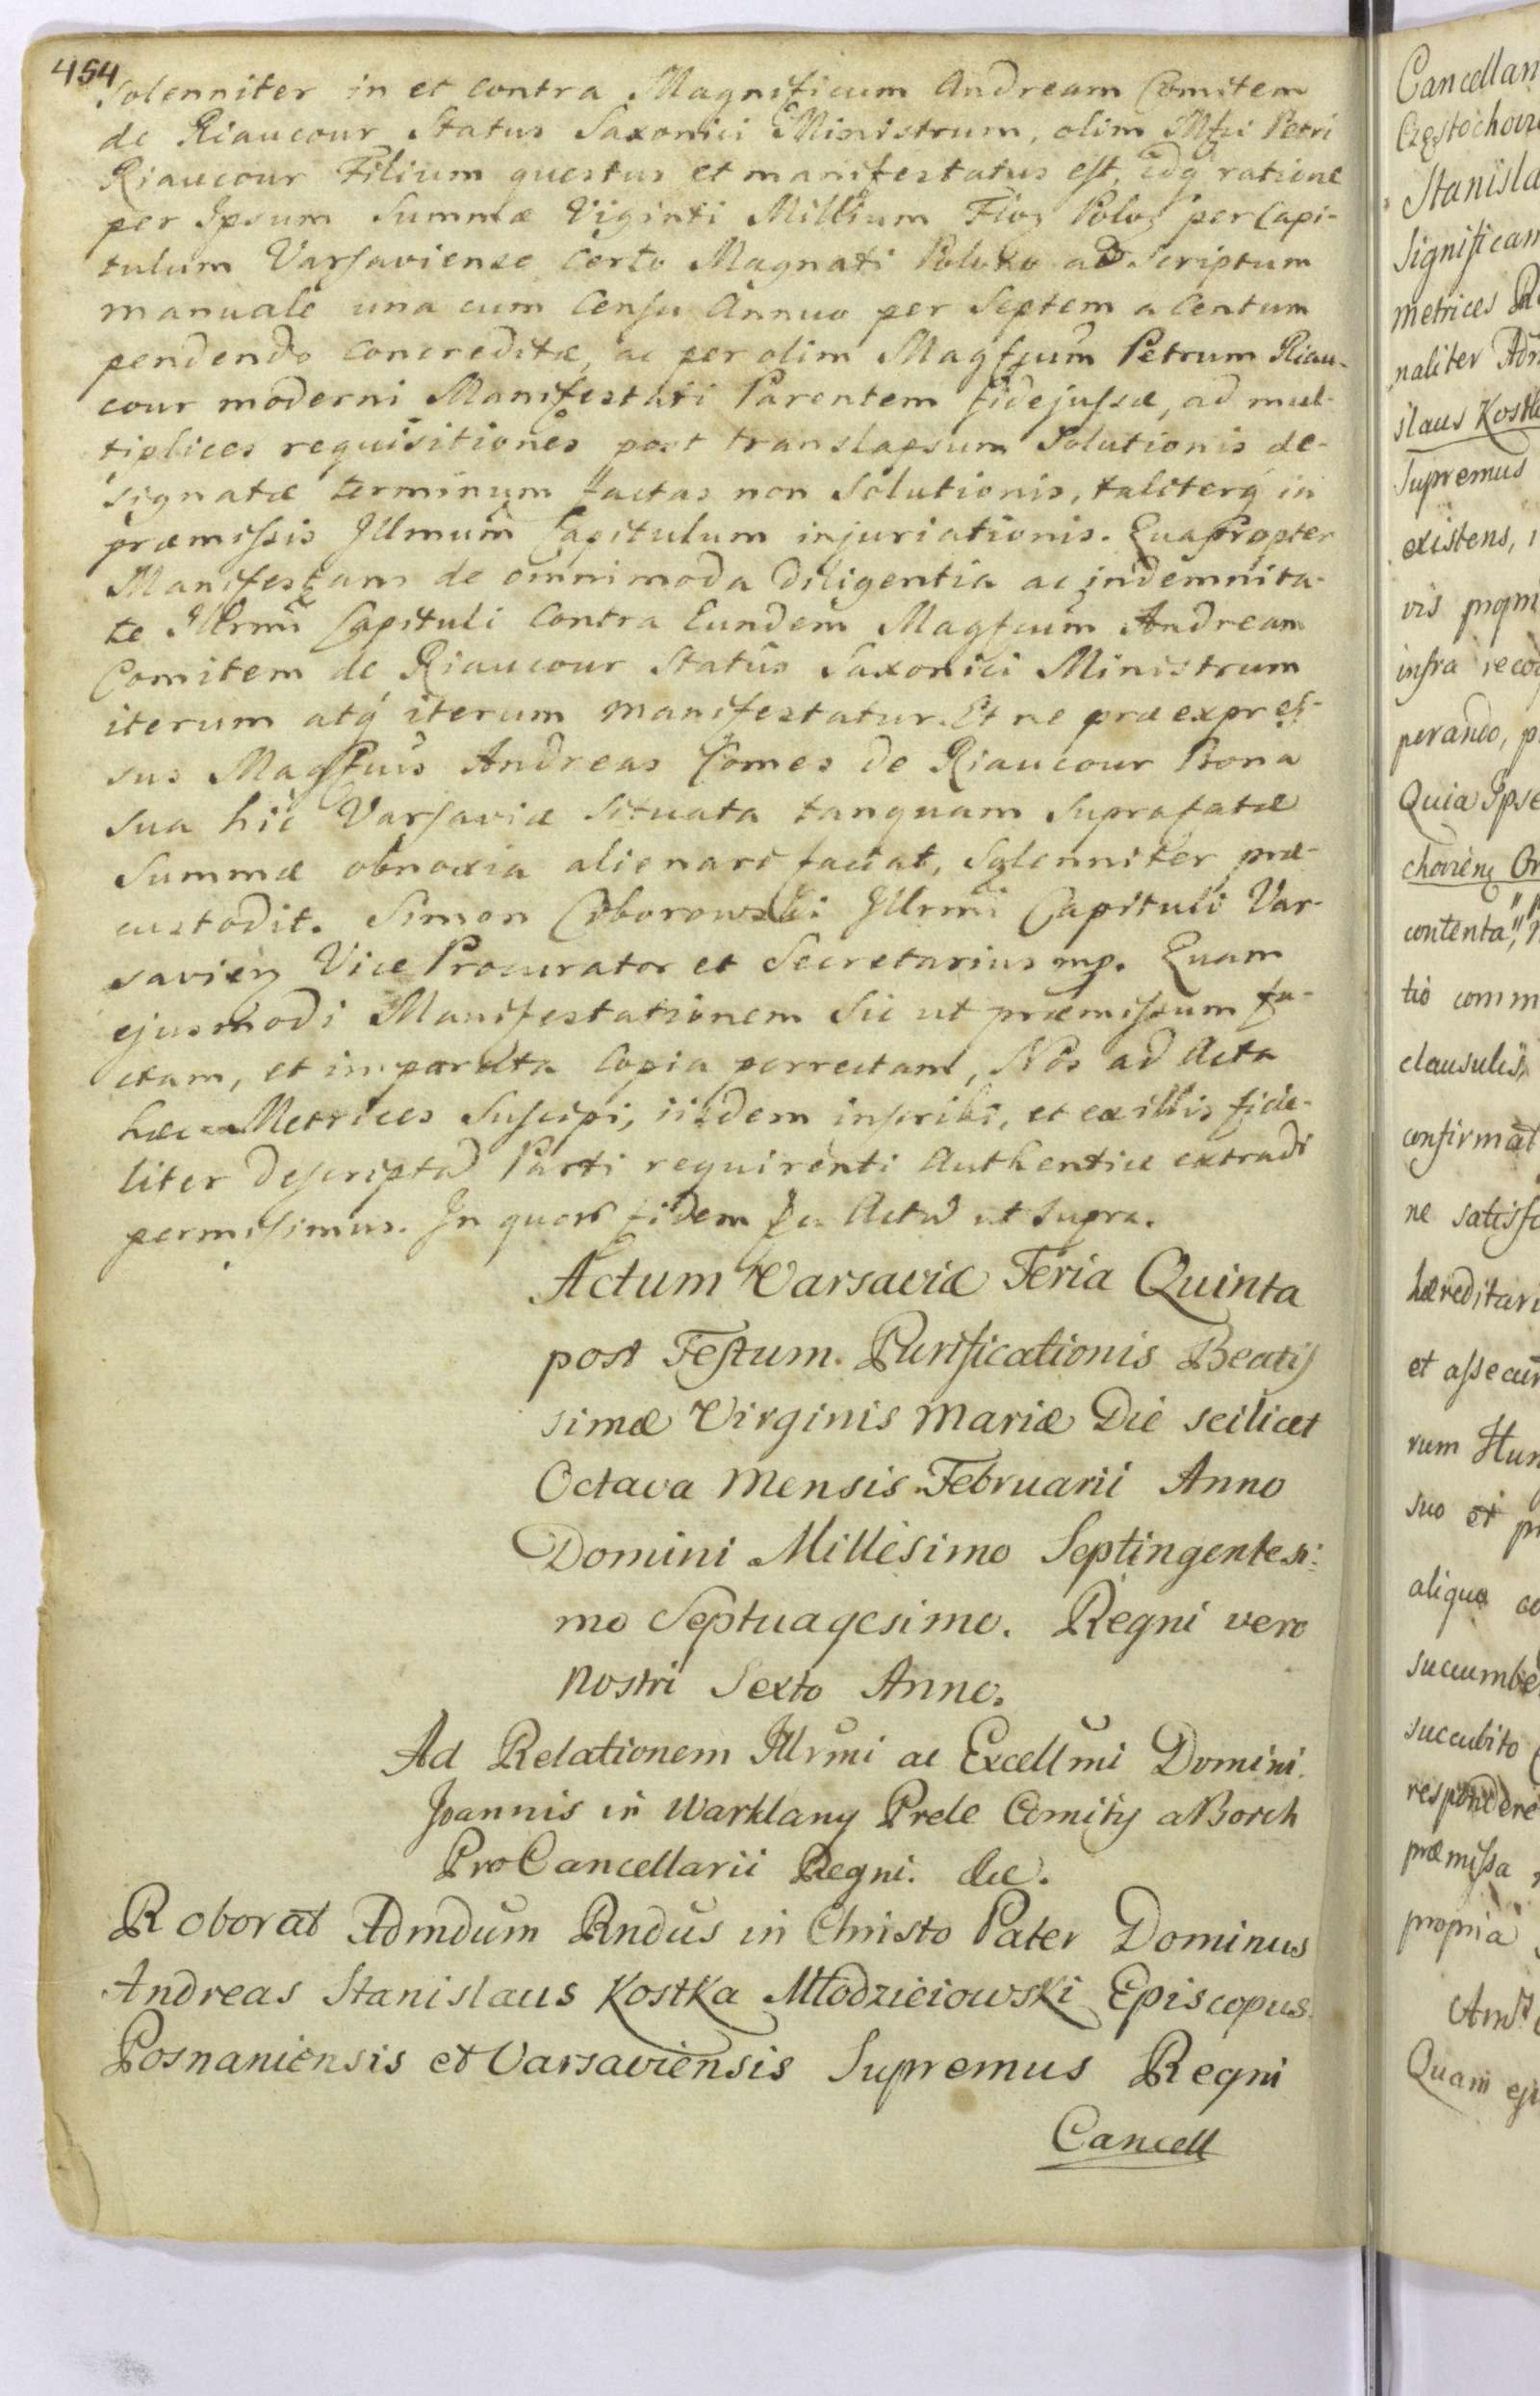 454
Solenniter in et contra Magnificum Andream Comitem
de Riaucour Status Saxonici Ministrum, olim Mfci Petri
Riaucour Filium questus et manifestatus est, idq ratione
per Ipsum Summæ Viginti Millium Flo Polo per Capi-
tulum Varsaviense certo Magnati Polono ad Scriptum
manuale una cum Censu Annuo per Septem a Centum
pendendo concreditæ, ac per olim Magfcum Petrum Riau-
cour moderni Manifestati Parentem fidejussæ, ad mul-
tiplices requisitiones post translapsum Solutionis de-
signatæ terminum factas non Solutionis, taliterq in
præmissis Illmum Capitulum injuriationis. Quapropter
Manifestans de omnimoda diligentia ac indemnita-
te Illrmi Capituli contra Eundem Magfcum Andream
Comitem de Riaucour Status Saxonici Ministrum
iterum atq iterum manifestatur. Et ne præexpres-
sus Magfcus Andreas Comes de Riaucour Bona
sua hic Varsaviæ Situata tanquam Suprafatæ
Summæ obnoxia alienari faciat, Solenniter præ-
custodit. Simon Ciborowski Illrmi Capituli Var-
savien Vice Procurator et Secretarius mp. Quam
ejusmodi Manifestationem Sic ut præmissum fa-
ctam, et in parata Copia porrectam, Nos ad Acta
hæc Metrices Suscipi, iisdem inscribi, et ex illis fide-
liter descriptam Parti requirenti Authentice extradi
permisimus. In quorum fidem Actum ut Supra.
Actum Varsaviæ Feria Quinta
post Festum Purificationis Beatis
simæ Virginis Mariæ Die scilicet
Octava Mensis Februarii Anno
Domini Millesimo Septingentesi:
mo Septuagesimo. Regni vero
nostri Sexto Anno.
Ad Relationem Illrmi ac Excellmi Domini
Joannis in Warklany Prele Comitis a Borch
ProCancellarii Regni. &c.
Roborat Admdum Rndus in Christo Pater Dominus
Andreas Stanislaus Kostka Młodzieiowski Episcopus
Posnaniensis et Varsaviensis Supremus Regni
Cancell
Cancellan
Częstochov
Stanisla
Significam
metrices R
naliter Adm
islaus Kostk
Supremus
existens,
vis propri
infra reco
perando, p
Quia Ipse
chovien Or
contenta,
tio comm
clausulis,
confirmat
ne satisf
hæreditari
et assecur
rum Hun
suo et pr
aliquo
succumbe
succubito
respondere
præmissa
propria
Quam ej